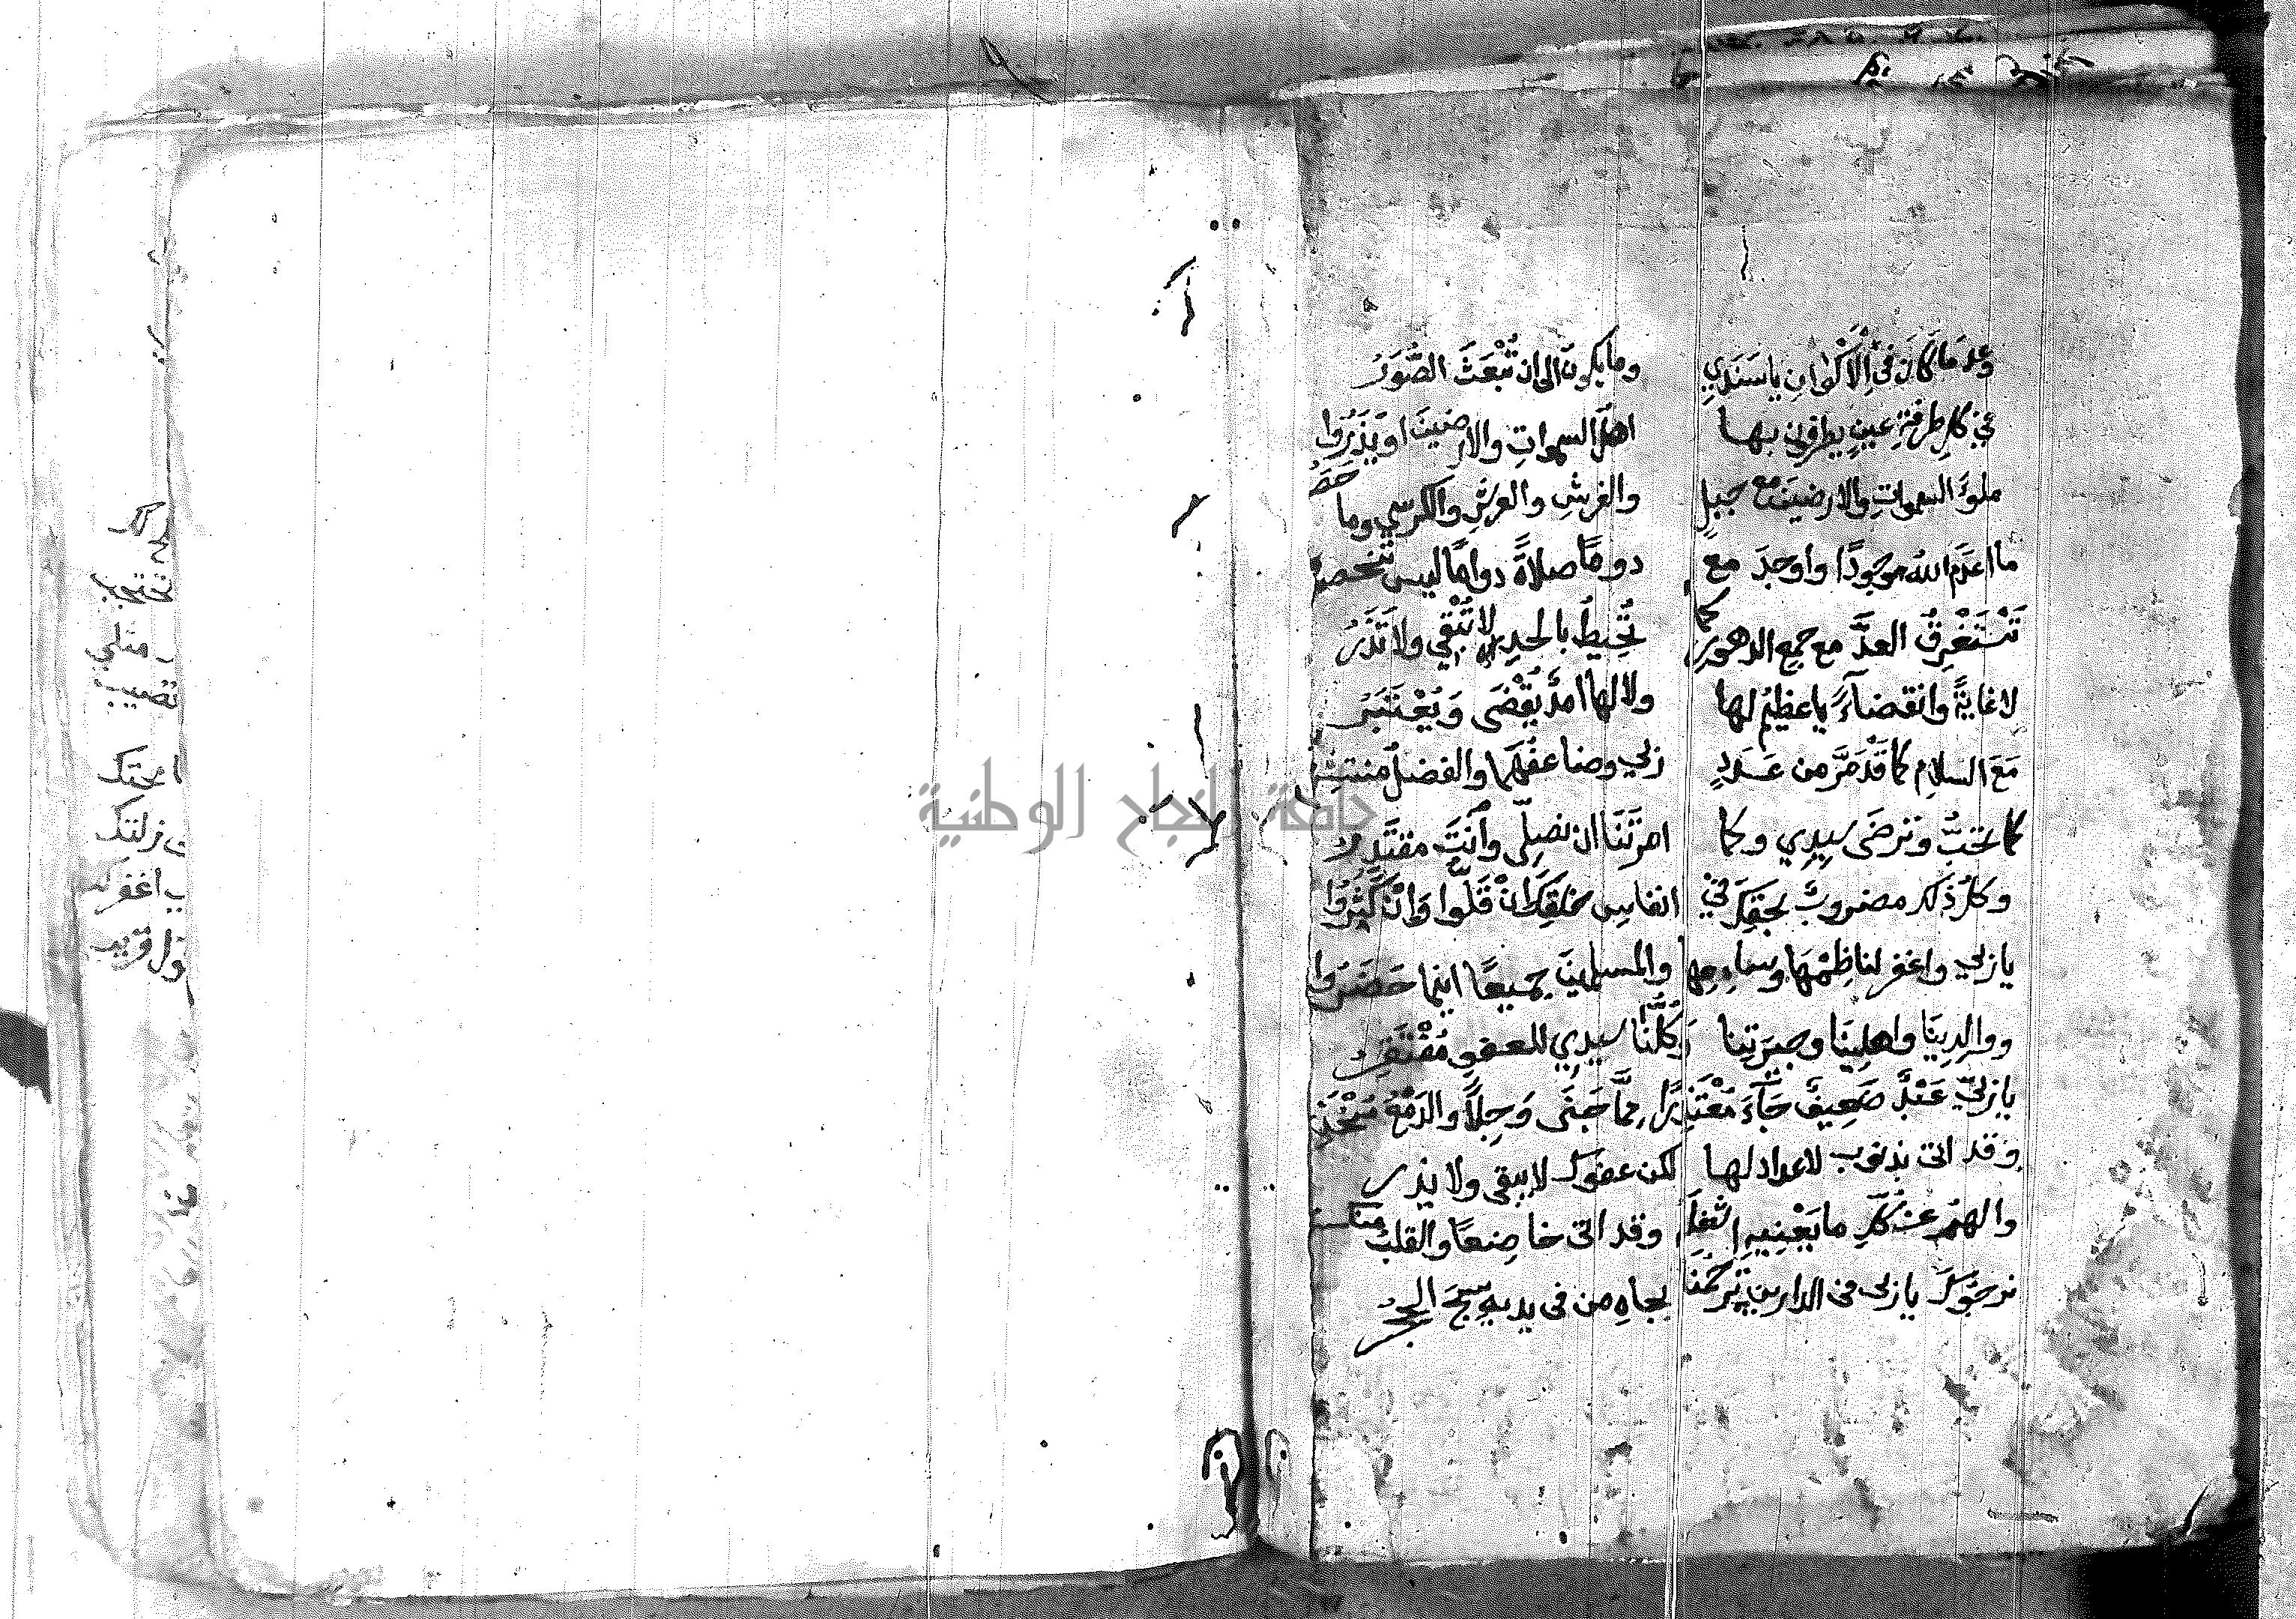 وعد ما كان في الأكوان يا سندي وما يكون الى ان تُبْعَثَ الصُّوَرُ
في كل طرفة عين يطرفون بها اهل السموات والارضين او يذروا
ملؤ السموات والارضين مع جبل والفرش والعرش والكرسي وما حصر
ما اعدم الله موجودًا واوجد مع دومًا صلاةً دوامًا ليس تنحصر
تَسْتَغْرِقُ العدَّ مع جمع الدهور كما تُحِيطُ بالحد لا تُبْقِي ولا تَذَرُ
لا غايةً وانقضاءً يا عظيمُ لها ولا لها امدٌ يُقْضَى وَيُعْتَبَرُ
مَعَ السلامِ كما قَدْ مَرَّ من عَدَدٍ ربي وضاعفهما والفضلُ منتشر
كما تحبُّ وترضى سيدي وكما امرتَنَا ان نصلي وأنت مقتدر
وكل ذلك مضروبٌ بحقك في انفاس خلقك إنْ قَلُّوا وَإنْ كَثُرُوا
يا ربي واغفر لناظِمْهَا وسامعها والمسلمين جميعًا اينما حَضَرُوا
ووالدِينَا واهلِينَا وجيرتنا وَكُلُّنَا سيدي للعفو مُفْتَقِرُ
يا ربي عَبْدٌ ضَعِيفٌ جَآءَ مُعْتَذِرًا مِمَّا جَنَى وَجِلًا والدَّمْعُ مُنْحَدِرُ
وقد اتى بذنوب لا عداد لها لكن عفوك لا يبقى ولا يذر
والهمُّ عن كلِّ ما يَعْنِيهِ اشغلَه وقد اتى خاضعًا والقلب منكسر
نرجوك يا ربي في الدارين ترحمنا بجاه من في يديه سبّح الحجر
جامعة النجاح الوطنية